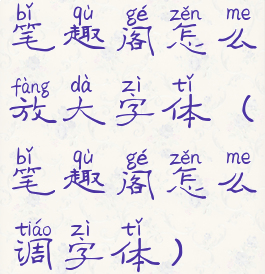 bǐ qù gé zěn me
笔趣阁怎么
fàng dà zì tǐ
放大字体（
bǐ qù gé zěn me
笔趣阁怎么
tiáo zì tǐ
调字体）